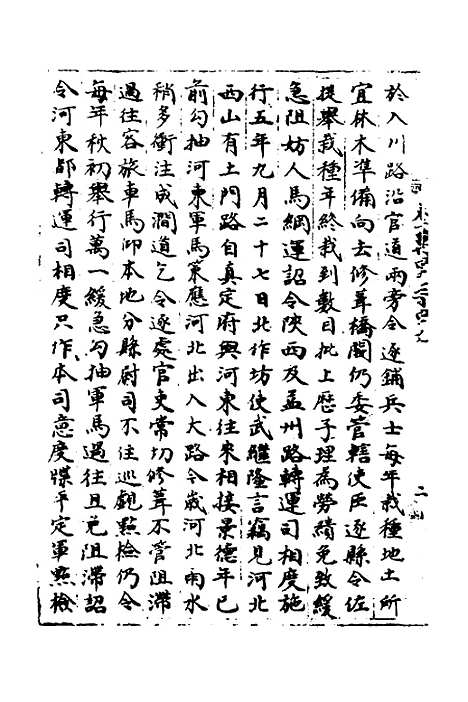 於入川路沿官道兩旁令逐鋪兵士每年栽種地土所
宜林木準備向去修葺橋閣仍委管轄使臣逐縣令佐
提舉栽種年終栽到數目批上歷子理為勞績免致緩
急阻妨人馬綱運詔令陝西及益州路轉運司相度施
行五年九月二十七日北作坊使武繼隆言竊見河北
西山有土門路自真定府與河東往來相接景德年已
前勾抽河東軍馬策應河北出入大路今歲河北雨水
稍多衝注成澗道乞令逐處官吏常切修葺不管阻滯
過往客旅車馬仰本地分縣尉司不住巡覷點檢仍令
每年秋初舉行萬一緩急勾抽軍馬過往且免阻滯詔
令河東都轉運司相度只作本司意度牒平定軍點檢
二